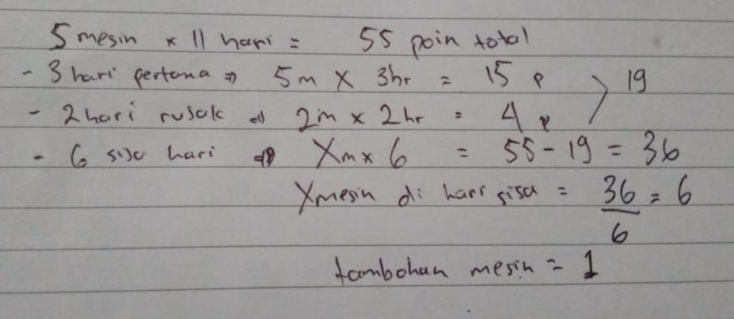 5 mesin x 11 hari = 55 poin total
- 3 hari pertama ⇒ 5m x 3hr = 15 p > 19
- 2 hari rusak ⇒ 2m x 2hr = 4 p
- 6 sisa hari ⇒ Xm x 6 = 55 - 19 = 36
X mesin di hari sisa = 36/6 = 6
tambahan mesin = 1